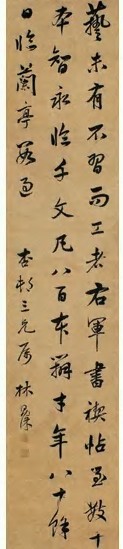 藝未有不習而工者右軍書禊帖至數十
本智永臨千文凡八百本年八十餘
日臨蘭亭數過 杏邨三兄屬 林